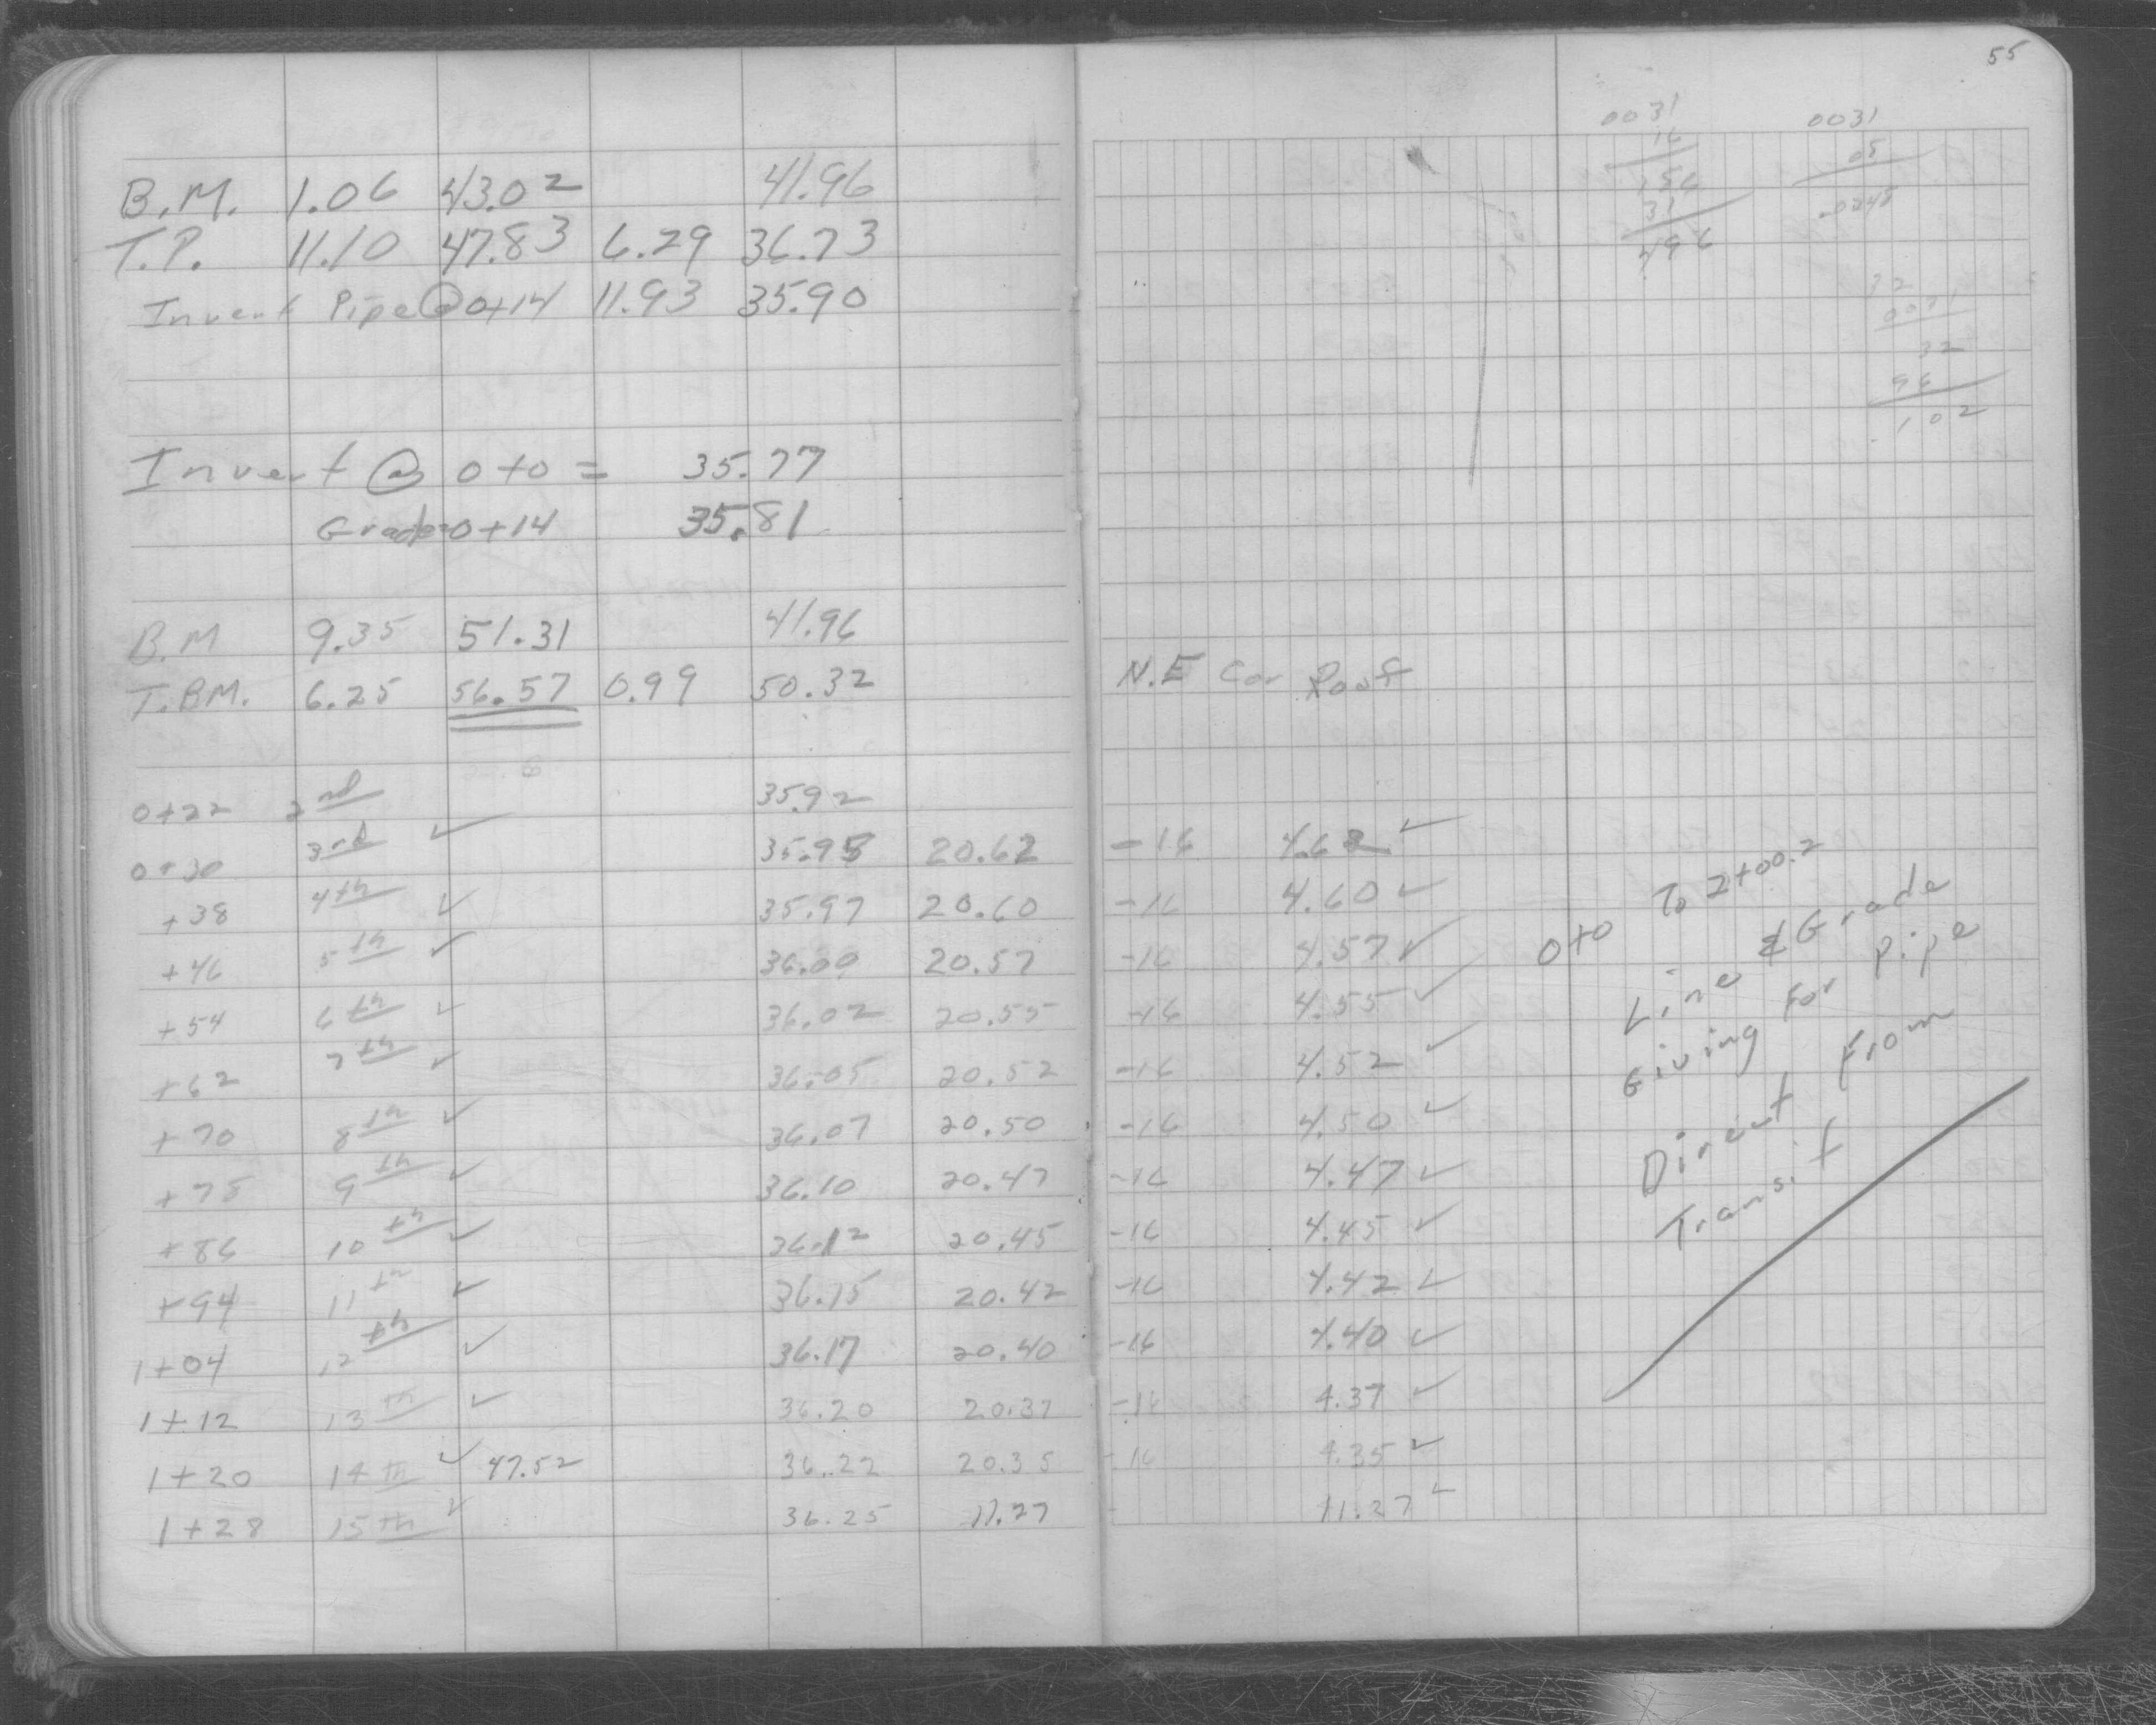 55
B.M. 1.06 43.02 41.96
T.P. 11.10 47.83 6.29 36.73
Invert Pipe @ 0+14 11.93 35.90
Invert @ 0+0 = 35.77
Grade 0+14 35.81
B.M 9.35 51.31 41.96
T.BM. 6.25 56.57 0.99 50.32 N.E Cor Roof
0+22 2nd 35.92
0+30 3rd ✓ 35.95 20.62 -16 4.62 ✓
+38 4th ✓ 35.97 20.60 -16 4.60 ✓
+46 5th ✓ 36.00 20.57 -16 4.57 ✓
+54 6th ✓ 36.02 20.55 -16 4.55 ✓
+62 7th ✓ 36.05 20.52 -16 4.52 ✓
+70 8th ✓ 36.07 20.50 -16 4.50 ✓
+78 9th ✓ 36.10 20.47 -16 4.47 ✓
+86 10th ✓ 36.12 20.45 -16 4.45 ✓
+94 11th ✓ 36.15 20.42 -16 4.42 ✓
1+04 12th ✓ 36.17 20.40 -16 4.40 ✓
1+12 13th ✓ 36.20 20.37 -16 4.37 ✓
1+20 14th ✓ 47.52 36.22 20.35 -16 4.35 ✓
1+28 15th ✓ 36.25 11.27 - 11.27 ✓
0031
16
31
496
0031
32
32
96
102
0+0 To 2+00.2
Line & Grade
Giving for pipe
Direct from
Transit